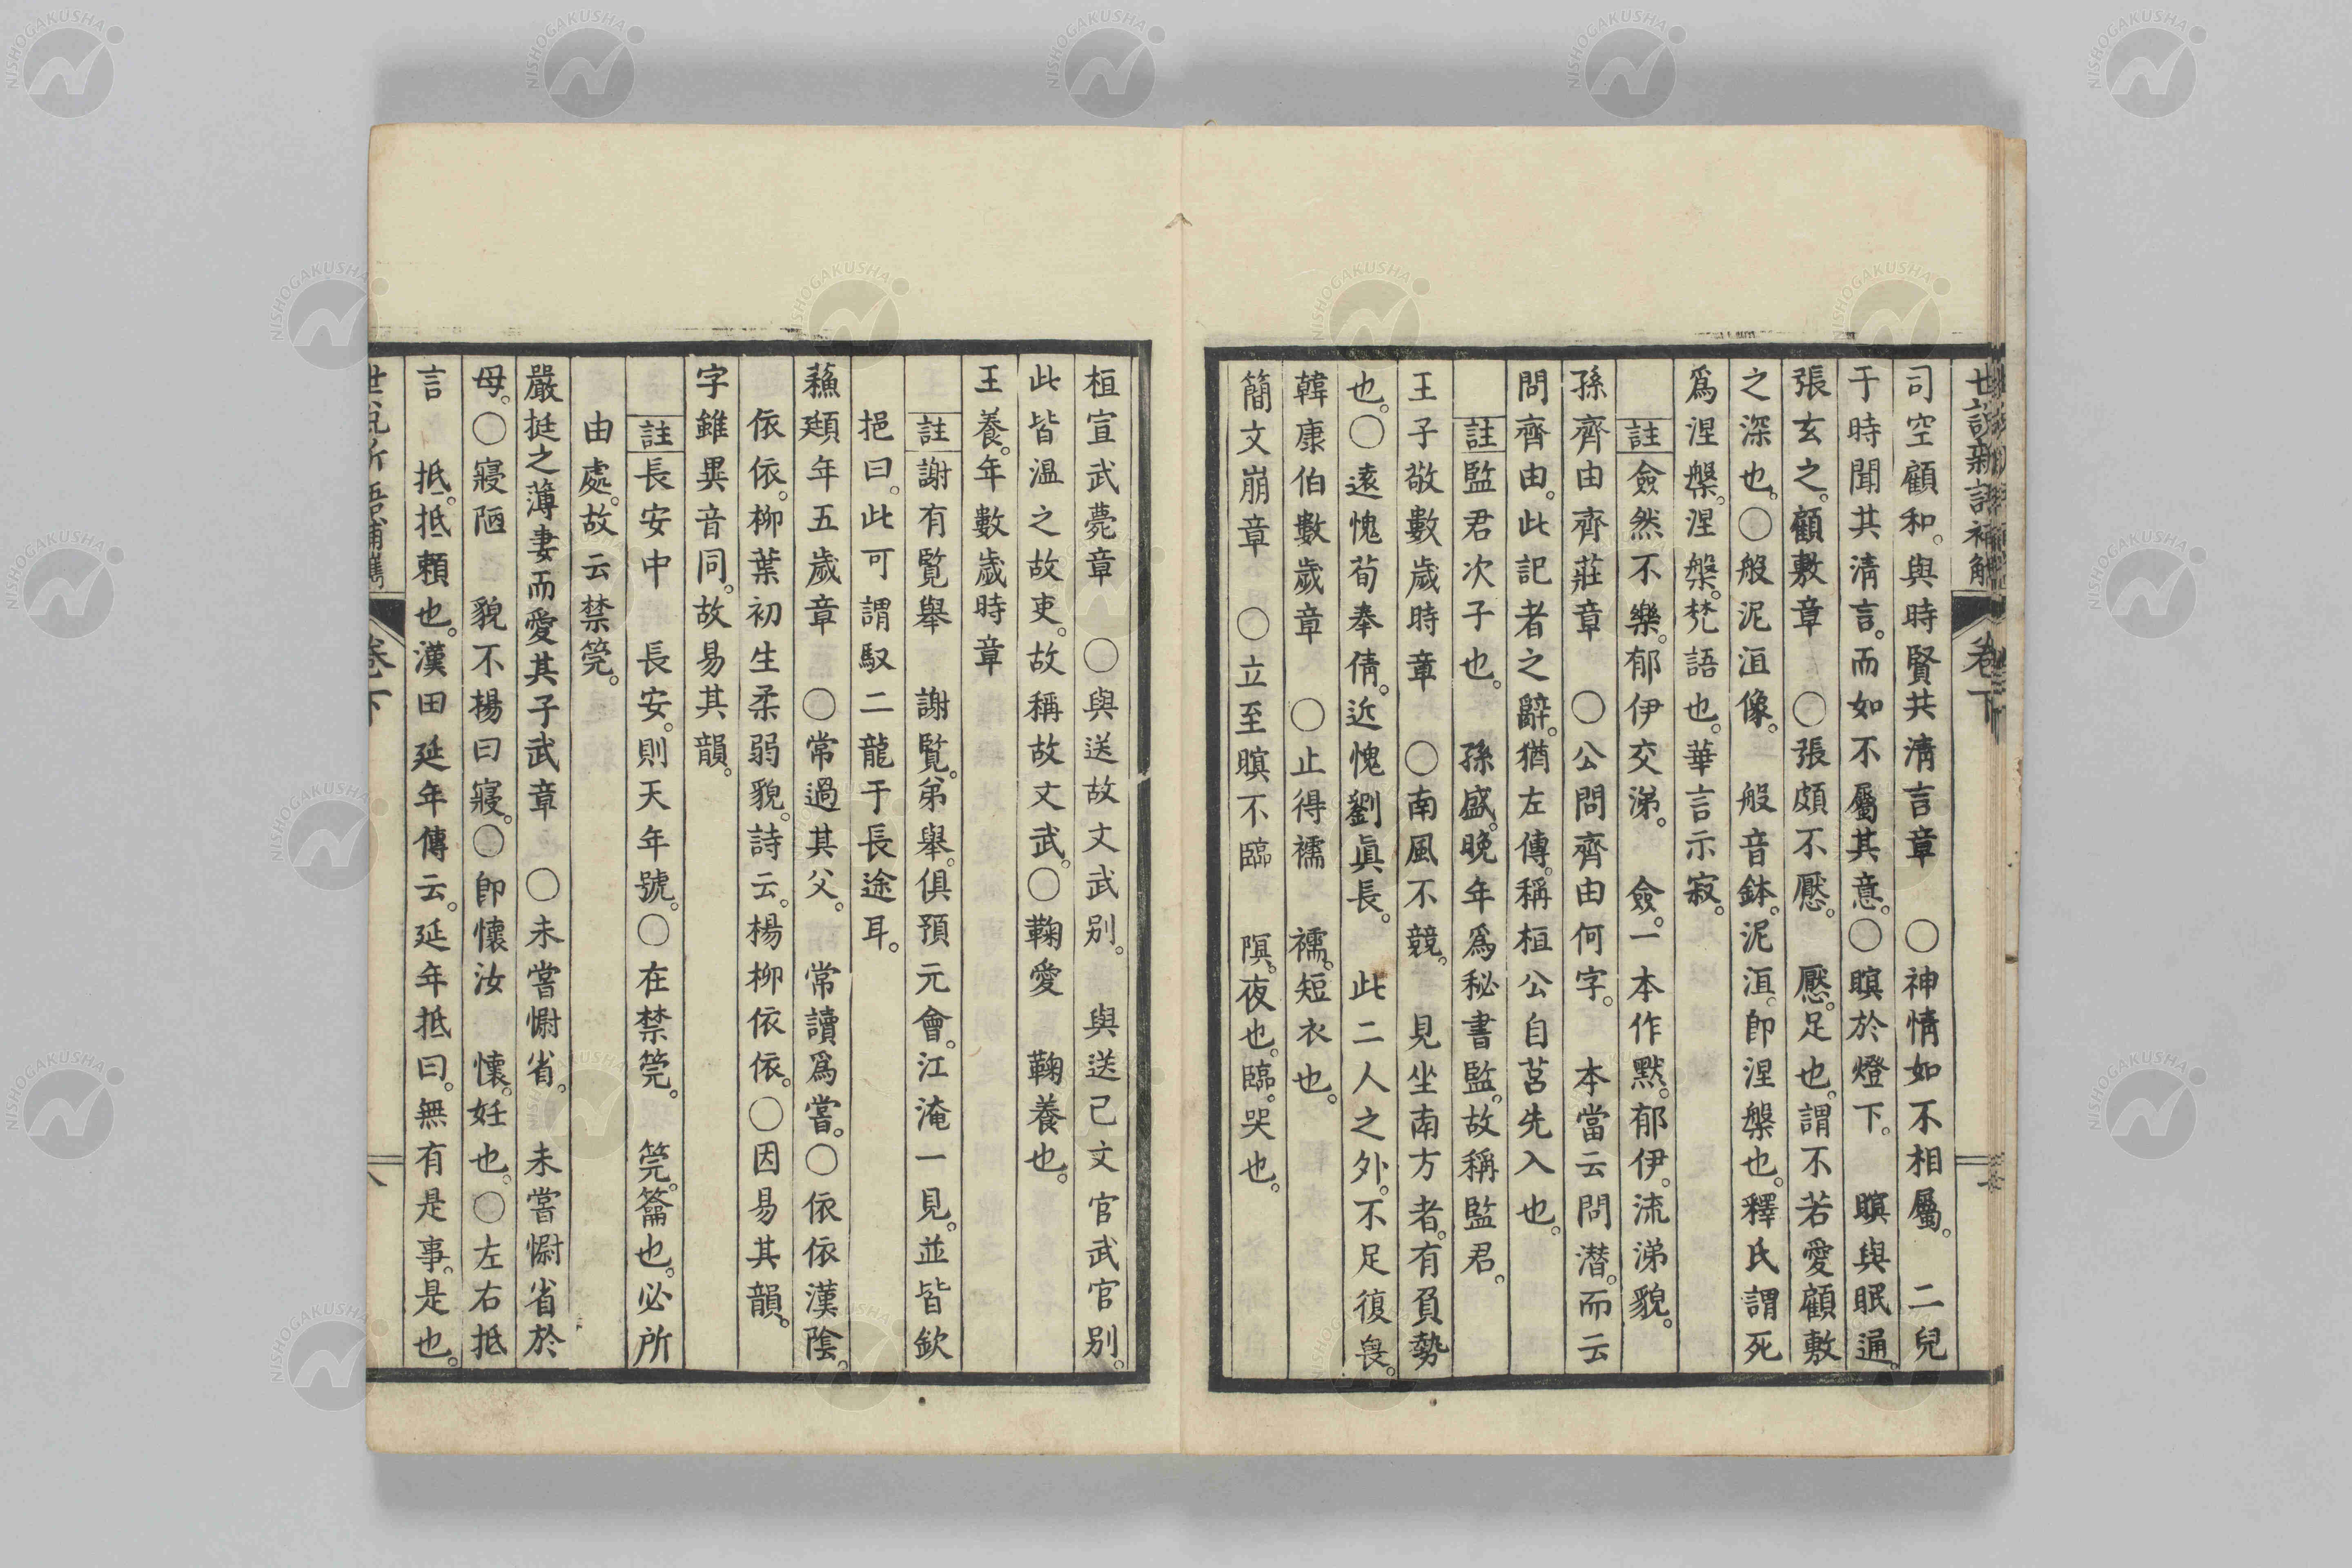 世說新語補觿 卷下
司空顧和。與時賢共淸言章 ○神情如不相屬。 二兒
于時聞其淸言。而如不屬其意。○瞑於燈下。 瞑與眠通。
張玄之。顧敷章 ○張頗不懕。 懕。足也。謂不若愛顧敷
之深也。○般泥洹像。 般音鉢。泥洹。卽涅槃也。釋氏謂死
爲涅槃。涅槃。梵語也。華言示寂。
註僉然不樂。郁伊交涕。 僉。一本作默。郁伊。流涕貌。
孫齊由齊莊章 ○公問齊由何字。 本當云問潛。而云
問齊由。此記者之辭。猶左傳。稱桓公自莒先入也。
註監君次子也。 孫盛。晚年爲秘書監。故稱監君。
王子敬數歲時章 ○南風不競。 見坐南方者。有負勢
也。○遠愧荀奉倩。近愧劉眞長。 此二人之外。不足復㒵。
韓康伯數歲章 ○止得襦 襦。短衣也。
簡文崩章 ○立至暝不臨 暝。夜也。臨。哭也。
桓宣武薨章 ○與送故文武別。 與送己文官武官別。
此皆溫之故吏。故稱故文武。○鞠愛 鞠養也。
王養。年數歲時章
註謝有覽舉 謝覽。弟舉。俱預元會。江淹一見。並皆欽
挹曰。此可謂馭二龍于長途耳。
蘓頲年五歲章 ○常過其父。 常讀爲嘗。○依依漢陰。
依依。柳葉初生柔弱貌。詩云。楊柳依依。○因易其韻。
字雖異音同。故易其韻。
註長安中 長安。則天年號。○在禁筦。 筦。籥也。必所
由處。故云禁筦。
嚴挺之薄妻而愛其子武章 ○未嘗慰省。 未嘗慰省於
母。○寢陋 貌不揚曰寢。○卽懷汝 懷。妊也。○左右抵
言 抵。抵賴也。漢田延年傳云。延年抵曰。無有是事。是也。
世說新語補觿 卷下 八